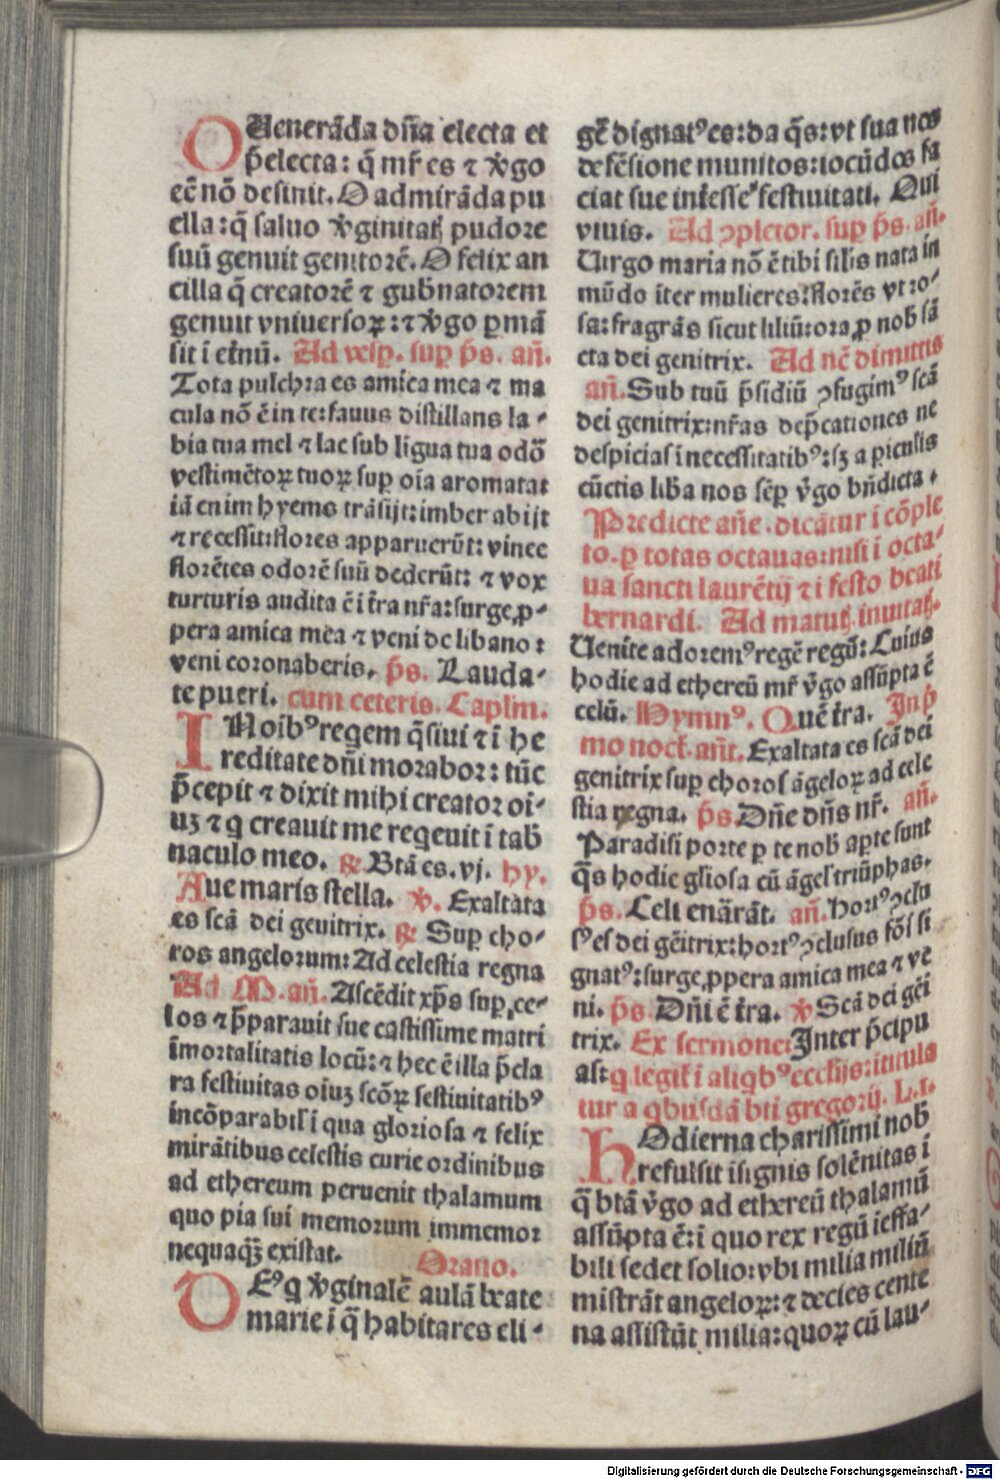 O Uenerãda dña electa et
p̃electa: q̃ mr̃ es ⁊ v̾go
eẽ nõ desinit. O admirãda pu
ella: q̃ saluo v̾ginitatꝭ pudore
suũ genuit genitorẽ. O felix an
cilla q̃ creatorẽ ⁊ gub̾natorem
genuit vniuersoꝝ: ⁊ v̾go ꝑmã
sit i et̾nũ. Ad vesp̲. sup̲ p̃s. añ.
Tota pulchra es amica mea ⁊ ma
cula nõ ẽ in te: fauus distillans la-
bia tua mel ⁊ lac sub ligua tua odõ
vestimẽtoꝝ tuoꝝ sup̲ oĩa aromata:
iã enim hyems trãsijt: imber abijt
⁊ recessit: flores apparuerũt: vinee
florẽtes odorẽ suũ dederũt: ⁊ vox
turturis audita ẽ i t̃ra nr̃a: surge ꝓ-
pera amica mea ⁊ veni de libano:
veni coronaberis. p̃s. Lauda-
te pueri. cum ceteris. Caplm.
I Noibꝰ requiem q̃siui ⁊ i he
reditate dñi morabor: tũc
p̃cepit ⁊ dixit mihi creator oi-
uꝫ ⁊ q creauit me reqeuit i tab̾
naculo meo. ℟. Btã es. vj. hy.
Aue maris stella. ℣. Exaltata
es scã dei genitrix. ℟ Sup̲ cho-
ros angelorum: Ad celestia regna
Ad M. añ. Ascẽdit xp̃s sup̲ ce-
los ⁊ p̃parauit sue castissime matri
imortalitatis locũ: ⁊ hec ẽ illa p̃cla
ra festiuitas oiuꝫ scõꝝ festiuitatibꝰ
incõparabil̾ i qua gloriosa ⁊ felix
mirãtibus celestis curie ordinibus
ad ethereum peruenit thalamum
quo pia sui memorum immemor
nequaq̃ꝫ existat. Oratio.
D Eꝰ q v̾ginalẽ aulã beate
marie i q̃ habitares eli-
gẽ dignatꝰ es: da q̃s: vt sua nos
defẽsione munitos: iocũdos fa
ciat sue int̾esse festiuitati. Qui
viuis. Ad ꝯpletor. sup̲ p̃s. añ.
Uirgo maria nõ ẽ tibi sil̾is nata in
mũdo iter mulieres: florẽs vt ro-
sa: fragrãs sicut liliũ: ora ꝓ nob̾ sã
cta dei genitrix. Ad nẽ dimittis
añ. Sub tuũ p̃sidiũ ꝯfugimꝰ scã
dei genitrix: nr̃as dep̃cationes ne
despicias i necessitatibꝰ: sꝫ a ꝑiculis
cũctis lib̾a nos sẽp̲ v̾go bñdicta.
Predicte añe. dicãtur i cõple
to. ꝑ totas octauas: nisi i octa-
ua sancti laurẽtij ⁊ i festo beati
bernardi. Ad matutꝭ. inuitatꝭ.
Uenite adoremꝰ regẽ regũ: Cuius
hodie ad ethereũ mr̃ v̾go assũpta ẽ
celũ. Hymnꝰ. Quẽ t̃ra. In p̾
mo noct̾. añt. Exaltata es scã dei
genitrix sup̲ choros ãgeloꝝ ad cele
stia regna. p̃s. Dñe dñs nr̃. añ.
Paradisi porte ꝑ te nob̾ aꝑte sunt
q̃s hodie gl̾iosa cũ ãgel̾ triũphas.
p̃s. Celi enãrãt. añ. Hortꝰ ꝯclu
sꝰ es dei gẽitrix: hortꝰ ꝯclusus fõs si
gnatꝰ: surge ꝓpera amica mea ⁊ ve
ni. p̃s. Dñi ẽ t̃ra. ℣ Scã dei gẽi
trix. Ex sermone: Inter p̃cipu
as: q legit̾ i aliqbꝰ ecclijs: ititula
tur a qbusdã bti gregorij. L. i.
h Odierna charissimi nob̾
refulsit isignis solẽnitas i
q̃ btã v̾go ad ethereũ thalamũ
assũpta ẽ: i quo rex regũ ieffa-
bili sedet solio: vbi milia miliũ
mistrãt angeloꝝ: ⁊ decies cente
na assistũt milia: quoꝝ cũ lau-
Digitalisierung gefördert durch die Deutsche Forschungsgemeinschaft - DFG